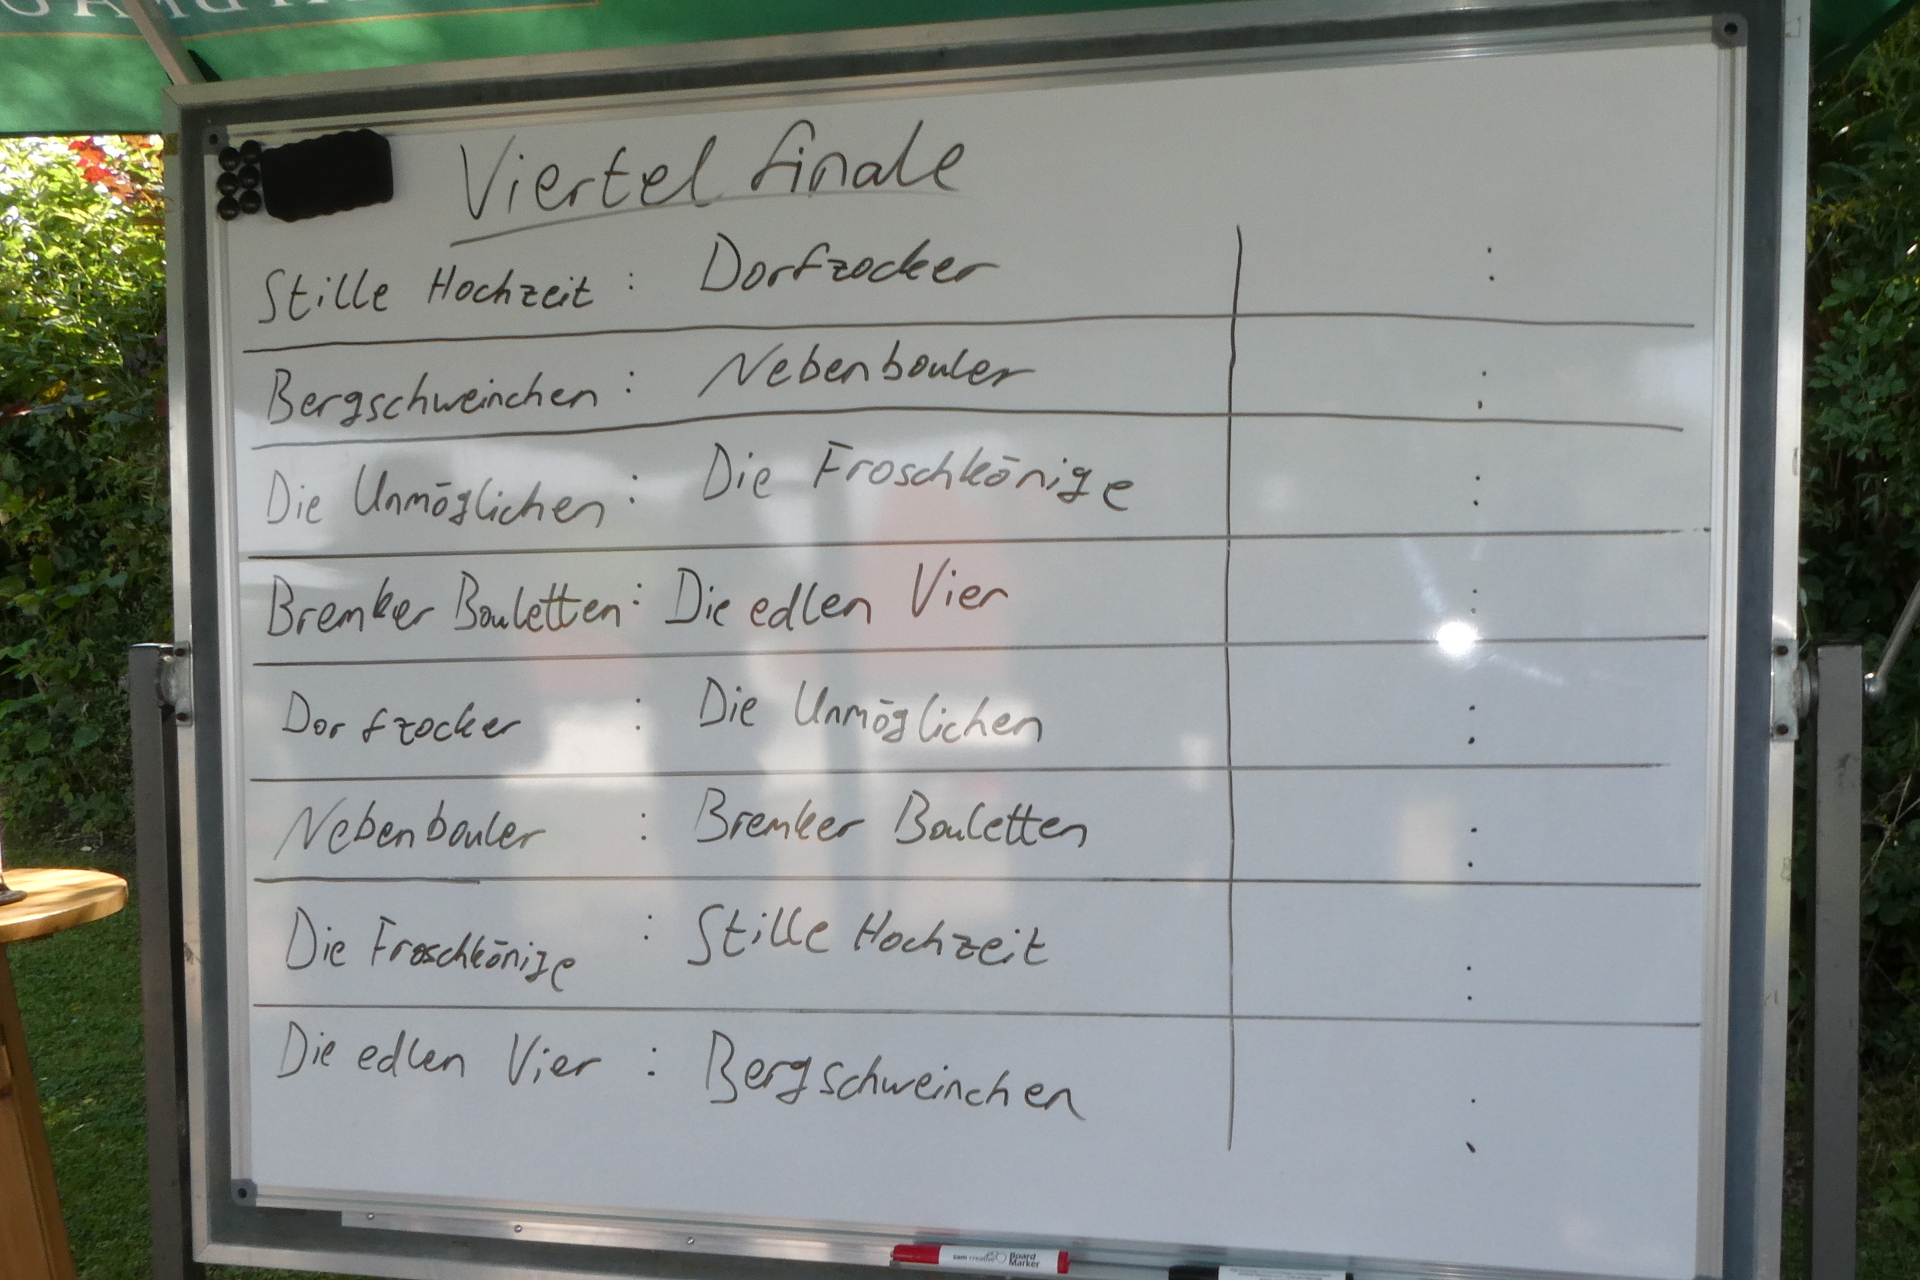 Viertelfinale
Stille Hochzeit : Dorfzocker :
Bergschweinchen : Nebenbouler :
Die Unmöglichen : Die Froschkönige :
Bremker Bouletten : Die edlen Vier :
Dorfzocker : Die Unmöglichen :
Nebenbouler : Bremker Bouletten :
Die Froschkönige : Stille Hochzeit :
Die edlen Vier : Bergschweinchen :
sam creative Board Marker